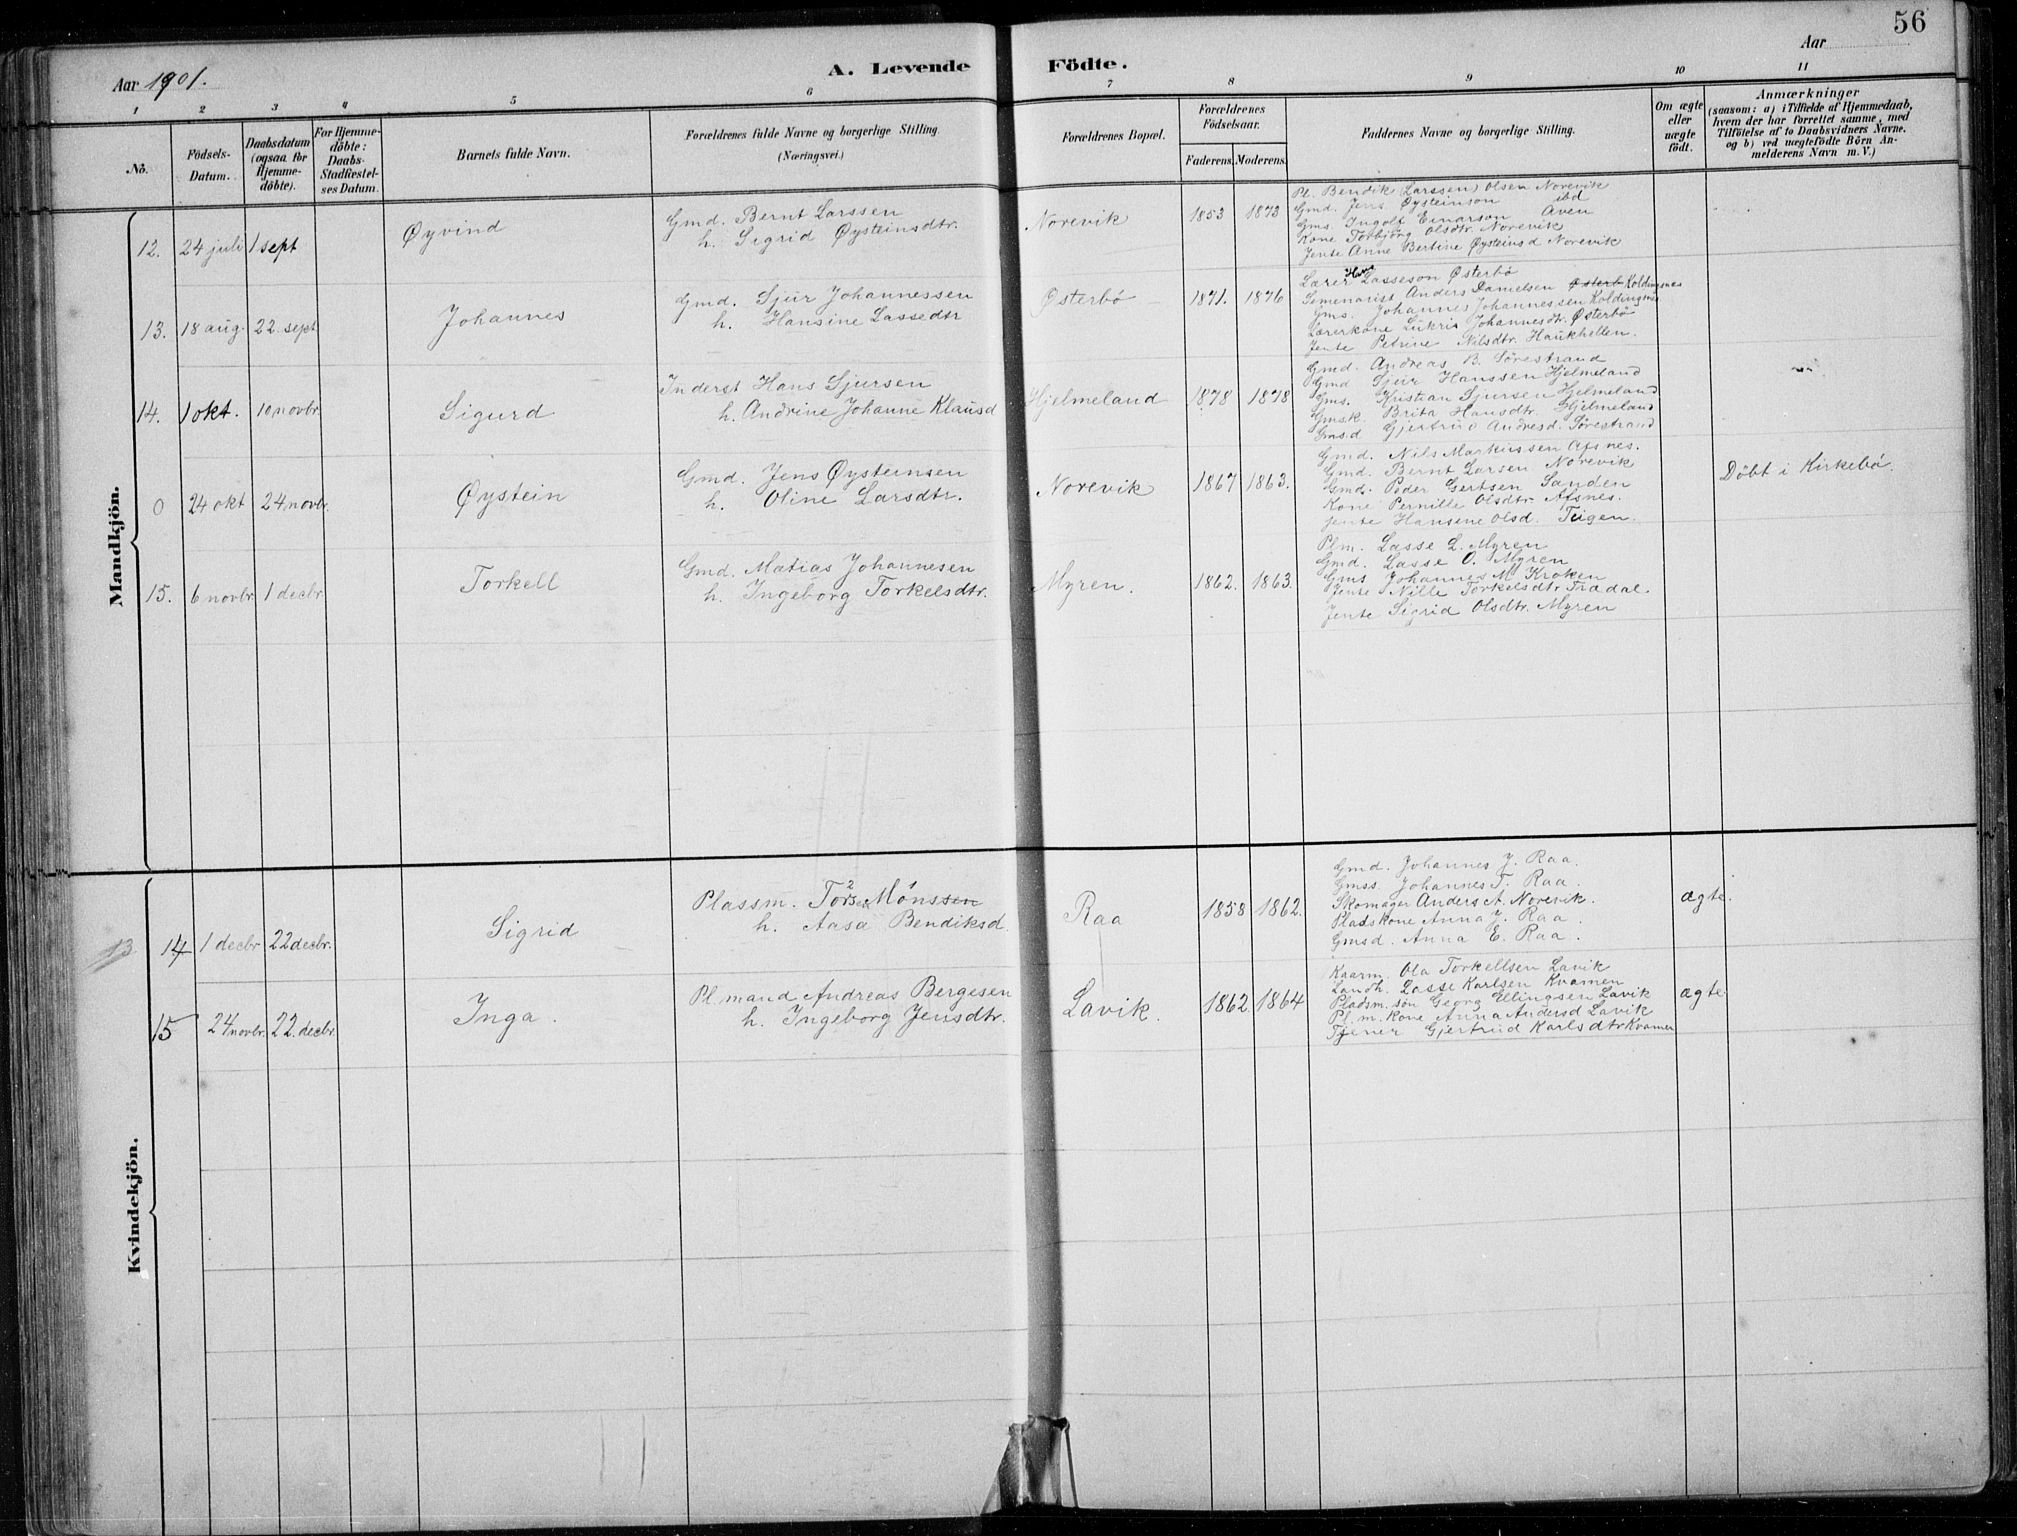 56
Aar 1901.
A. Levende Födte.
Aar
1 2 3 4 5 6 7 8 9 10 11
No.
Födsels-Datum.
Daabsdatum (ogsaa for Hjemmedöbte).
For Hjemmedöbte: Daabs-Stadfæstelses Datum.
Barnets fulde Navn.
Forældrenes fulde Navne og borgerlige Stilling.
(Næringsvei.)
Forældrenes Bopæl.
Forældrenes Födselsaar.
Faderens. Moderens.
Faddernes Navne og borgerlige Stilling.
Om ægte eller uægte födt.
Anmærkninger
(saasom: a) i Tilfælde af Hjemmedaab,
hvem der har forrettet samme, med
Tilföielse af to Daabsvidners Navne.
og b) ved uægtefödte Börn Anmelderens Navn m. V.)
Mandkjön.
12. 24 juli 1 sept
Øyvind
Gmd. Bernt Larssen
h. Sigrid Øysteinsdtr.
Norevik
1853 1873
Pl. Bendik (Larssen) Olsen Norevik
Gmd. Jens Øysteinson ibd
Gms. Ingolf Einarson Aven
Kone Torbjørg Olsdtr. Norevik
Jente Anne Bertine Øysteinsd Norevik
13. 18 aug. 22. sept
Johannes
Gmd. Sjur Johannessen
h. Hansine Lassedtr
Østerbö
1871. 1876
Lærer Hans Lasseson Østerbö
Semenarist Anders Danielsen Østerb Koldingsnes
Gms. Johannes Johannessen Koldingsnes
Lærerkone Lukris Johannesdtr. Østerbö
Jente Petrine Nilsdtr. Haukhellen.
14. 1 okt. 10 novbr.
Sigurd
Inderst Hans Sjursen
h. Andrine Johanne Klausd
Hjelmeland
1878 1878
Gmd. Andreas B. Sörestrand
Gmd Sjur Hanssen Hjelmeland
Gms. Kristian Sjursen Hjelmeland
Gmsk. Brita Hansdtr. Hjelmeland
Gmsd Gjertrud Andresd. Sörestrand
0 24 okt 24 novbr.
Øystein
Gmd. Jens Øysteinsen
h. Oline Larsdtr.
Norevik
1867 1863.
Gmd. Nils Markussen Afsnes.
Gmd. Bernt Larsen Norevik
Gmd. Peder Gertsen Sanden
Kone Pernille Olsdtr. Afsnes.
Jente Hansine Olsd. Teigen.
Döbt i Kirkebö.
15. 6 novbr. 1 decbr.
Torkell
Gmd. Matias Johannesen
h. Ingeborg Torkelsdtr.
Myren.
1862. 1863.
Plm. Lasse L. Myren
Gmd. Lasse O. Myren
Gms Johannes M. Kroken
Jente Nille Torkelsdtr. Trædal.
Jente Sigrid Olsdtr. Myren
Kvindekjön.
13 14 1 decbr 22 decbr.
Sigrid
Plassm. Tors 2 Mønssen
h. Aasa Bendiksd.
Raa
1858 1862.
Gmd. Johannes J. Raa.
Gmss. Johannes T. Raa.
Skomager Anders A. Norevik.
Pladskone Anna J. Raa.
Gmsd. Anna E. Raa.
ægte.
15 24 novbr. 22. decbr.
Inga.
Pl.mand Andreas Bergesen
h. Ingeborg Jensdtr.
Lavik.
1862. 1864
Kaarm. Ola Torkellsen Lavik
Landh. Lasse Karlsen Kvamen
Pladsm. søn Georg Ellingsen Lavik
Pl. m. kone Anna Andersd Lavik
Tjener Gjertrud Karlsdtr Kvamen
ægte